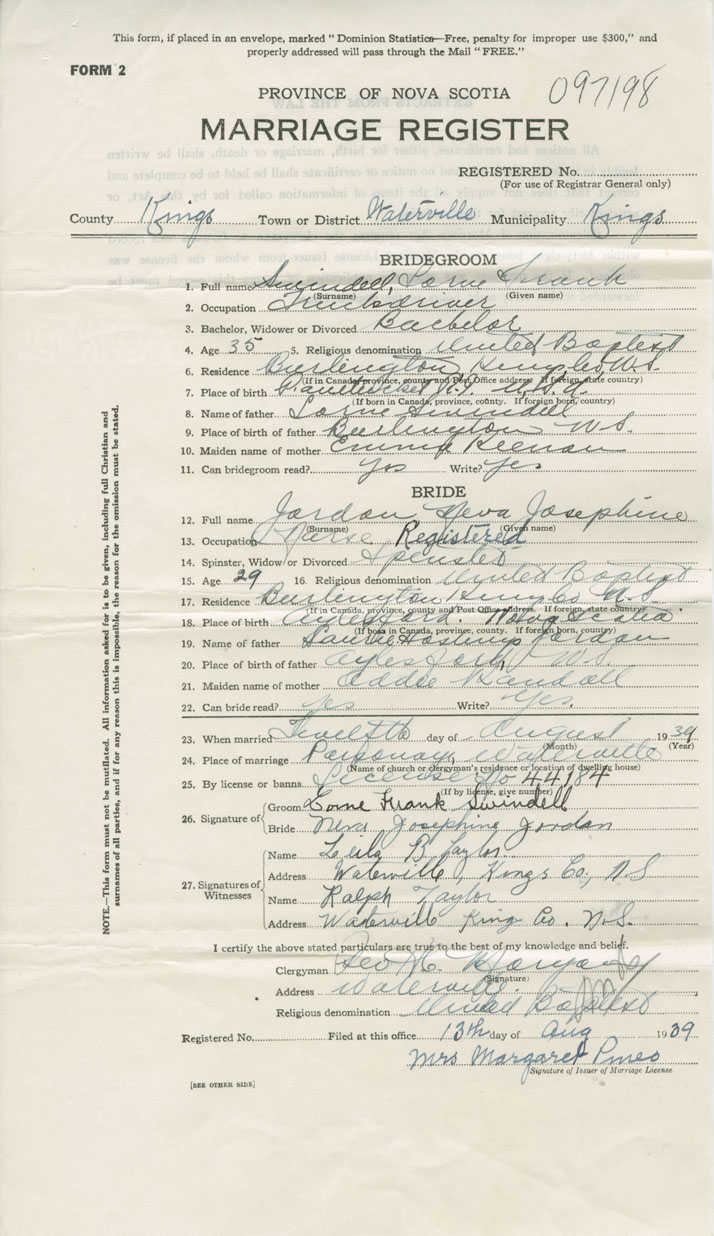 This form, if placed in an envelope, marked "Dominion Statistics—Free, penalty for improper use $300," and
properly addressed will pass through the Mail "FREE."
FORM 2
PROVINCE OF NOVA SCOTIA
097198
MARRIAGE REGISTER
REGISTERED No.
(For use of Registrar General only)
County Kings Town or District Waterville Municipality Kings
BRIDEGROOM
1. Full name Swindell, Lorne Frank
(Surname) (Given name)
2. Occupation Truckdriver
3. Bachelor, Widower or Divorced Bachelor
4. Age 35 5. Religious denomination United Baptist
6. Residence Burlington Kings Co N.S.
(If in Canada, province, county and Post Office address. If foreign, state country)
7. Place of birth U.S.A.
(If born in Canada, province, county. If foreign born, country)
8. Name of father Lorne Swindell
9. Place of birth of father Burlington N.S.
10. Maiden name of mother Emma Keenan
11. Can bridegroom read? yes Write? yes
BRIDE
12. Full name Jordan Neva Josephine
(Surname) (Given name)
13. Occupation Nurse Registered
14. Spinster, Widow or Divorced Spinster
15. Age 29 16. Religious denomination United Baptist
17. Residence Burlington Kings Co N.S
(If in Canada, province, county and Post Office address. If foreign, state country)
18. Place of birth Aylesford. Nova Scotia
(If born in Canada, province, county. If foreign born, country)
19. Name of father Jordan
20. Place of birth of father Aylesford, N.S.
21. Maiden name of mother Addie Randall
22. Can bride read? yes Write? yes.
23. When married Twelfth day of August 1939
(Month) (Year)
24. Place of marriage Parsonage, Waterville
(Name of church or clergyman's residence or location of dwelling house)
25. By license or banns License No 44184
(If by license, give number)
26. Signature of
Groom Lorne Frank Swindell
Bride Neva Josephine Jordan
27. Signatures of Witnesses
Name Leila B. Taylor.
Address Waterville, Kings Co., N.S
Name Ralph Taylor
Address Waterville King Co. N.S.
I certify the above stated particulars are true to the best of my knowledge and belief.
Clergyman Geo
(Signature)
Address Waterville.
Religious denomination United Baptist
Registered No. Filed at this office 13th day of Aug 1939
Mrs Margaret Pineo
Signature of Issuer of Marriage License
[SEE OTHER SIDE]
NOTE.—This form must not be mutilated. All information asked for is to be given, including full Christian and
surnames of all parties, and if for any reason this is impossible, the reason for the omission must be stated.